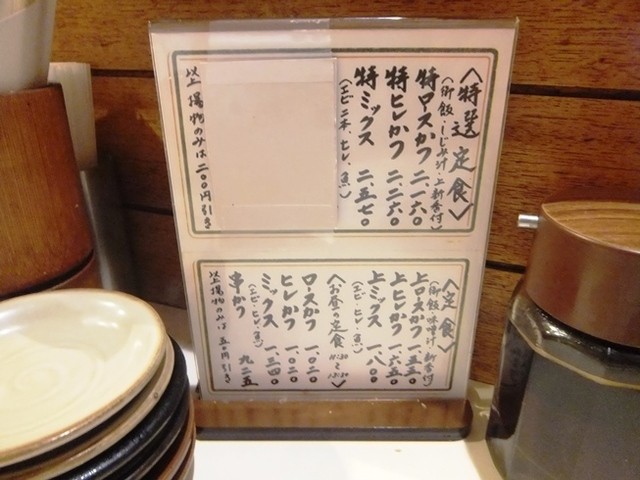 〈特選定食〉
(御飯・しじみ汁・上新香付)
特ロースかつ 二、一六〇
特ヒレかつ 二、二六〇
特ミックス 二、五七〇
(エビ二本、ヒレ、魚)
以上揚物のみは二〇〇円引き
〈定食〉
(御飯・味噌汁・新香付)
上ロースかつ 一、五五〇
上ヒレかつ 一、六五〇
上ミックス 一、八〇〇
(エビ・ヒレ・魚)
〈お昼の定食 11:30〜13:30〉
ロースかつ 一、〇二〇
ヒレかつ 一、〇二〇
ミックス 一、三四〇
(エビ・ヒレ・魚)
串かつ 九二五
以上揚物のみは五〇円引き